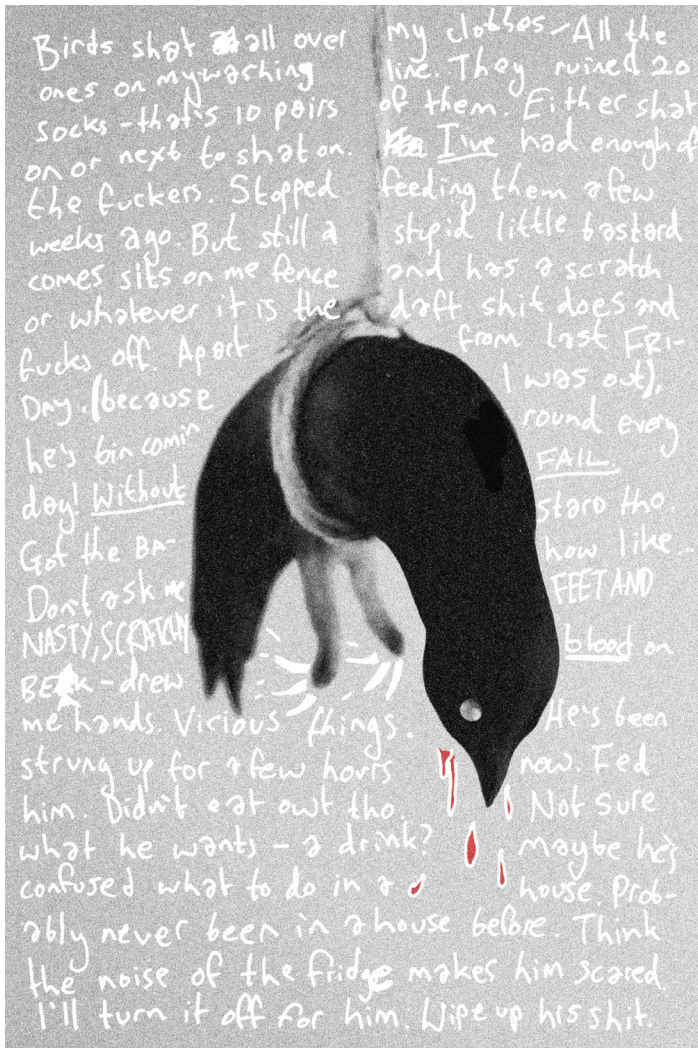 Birds shat all over my clothes - All the
ones on my waching line. They ruined 20
socks - that's 10 pairs of them. Either shat
on or next to shat on. I've had enough of
the fuckers. Stopped feeding them a few
weeks ago. But still a stupid little bastard
comes sits on me fence and has a scratch
or whatever it is the daft shit does and
fucks off. Apart from last FRI-
DAY. (because I was out),
he's bin comin round every
day! Without FAIL.
Got the BA- starD tho.
Don't ask me how like..
NASTY, SCRATCHY FEET AND
BEAK - drew blood on
me hands. Vicious things. He's been
strung up for a few hours now. Fed
him. Didn't eat owt tho. Not sure
what he wants - a drink? maybe he's
confused what to do in a house. Prob-
ably never been in a house before. Think
the noise of the fridge makes him scared.
I'll turn it off for him. Wipe up his shit.